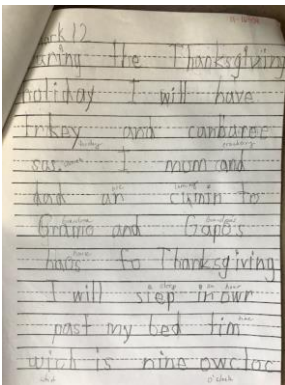 Week 12
During the Thanksgiving
holiday I will have
trkey and canbaree
turkey cranberry
sas. I mum and
dad an cumin to
Gramo and Gapo's
haos fo Thanksgiving
I will slep in owr
past my bed tim
wich is nine owcloc
o'clock